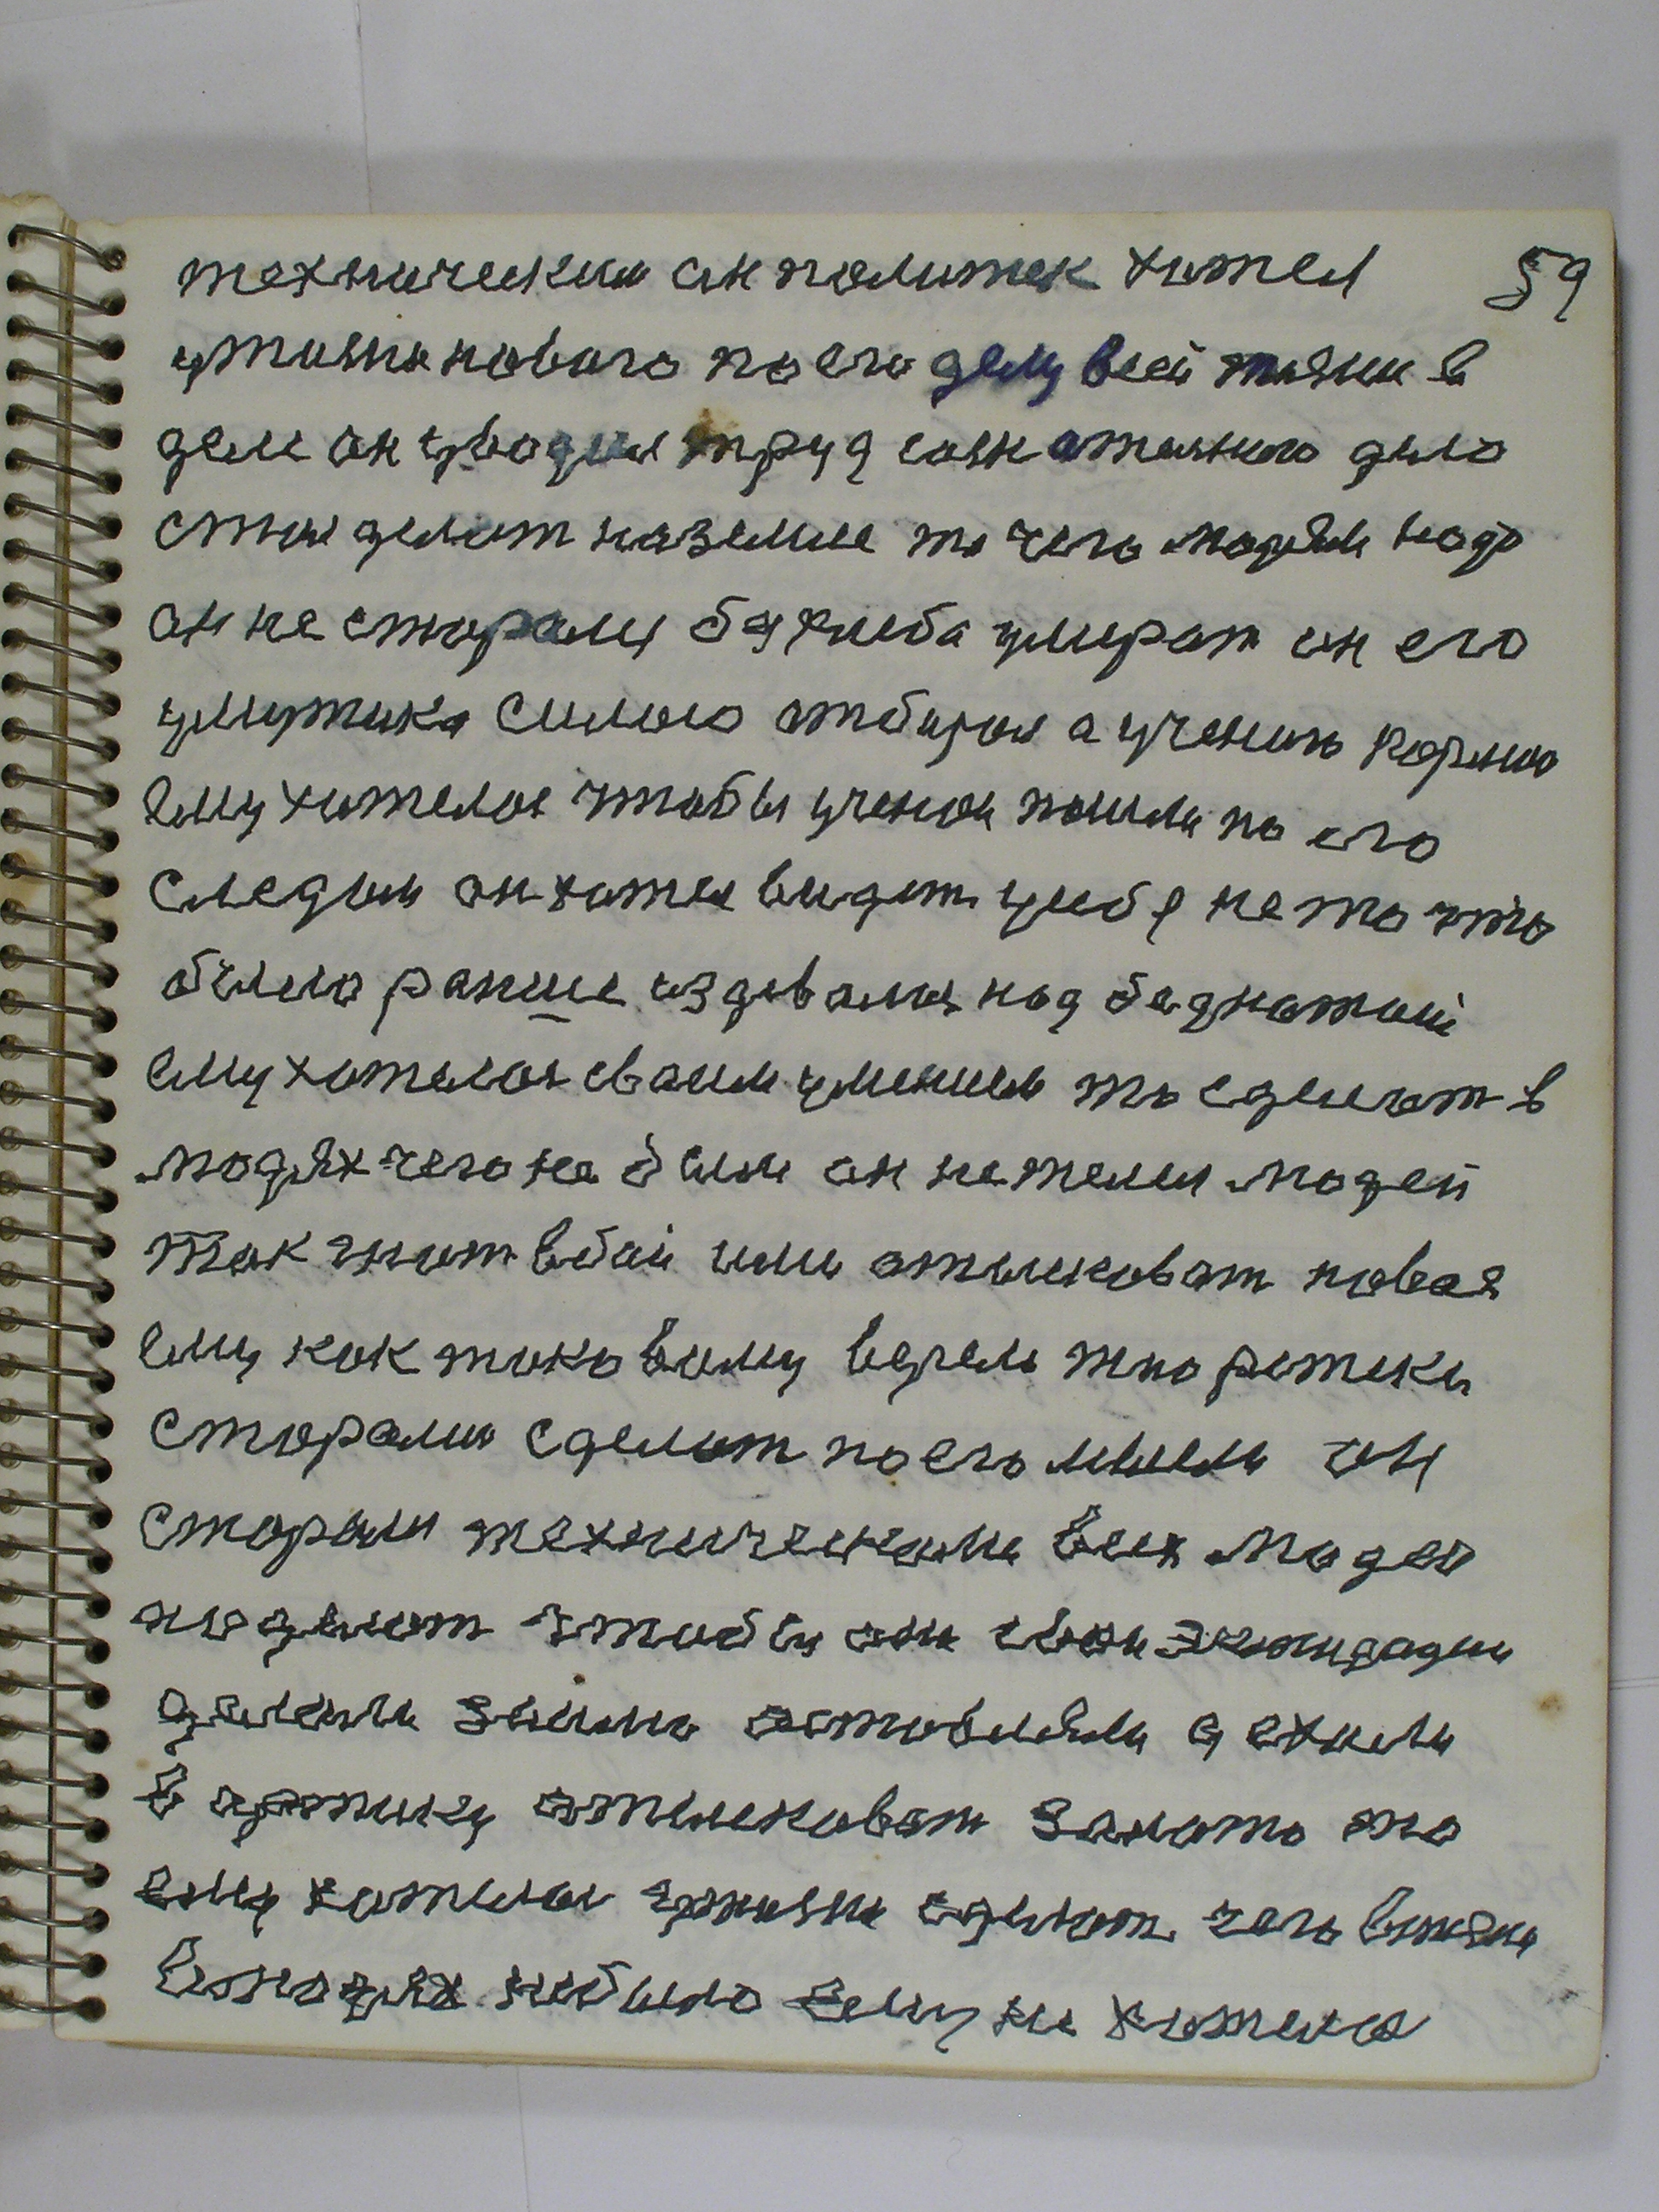 технический он политек хотел 59
установово по его делу всей жизни в
деле он вводил труд сознательного дело
стал делат на земле то чего людям надо
он не старался без хлеба умират он его
у мужика силою отбирал а ученых кормил
ему хотелос чтобы ученои пошли по его
следам он хотел видет у себя не то что
было раньше издевался над беднотой
ему хотелос своим умением то сделат в
людях чего не было он не жалел людей
так гнат в бой или атысковат новое
ему как таковому верили теоретики
старалис сделат по его мысли он
старался техническами всех людей
наделат чтобы они свои экспидации
делали зимно остовляли ехали
в арктику отысковат золото то
ему хотелос в жизни сделат чего в жизни
в людях не было ему не хотелос